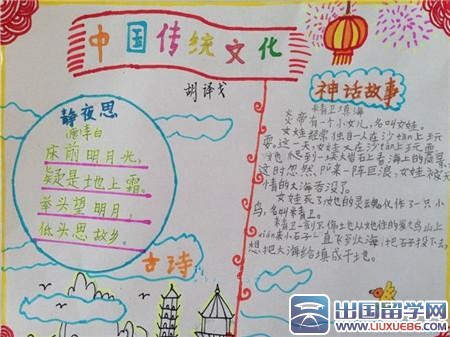 中国传统文化
胡译戈
静夜思
唐李白
床前明月光,
疑是地上霜。
举头望明月,
低头思故乡。
古诗
神话故事
精卫填海
炎帝有一个小女儿,名叫女娃。
女娃经常独自一人在沙tān上玩
耍。这一天,女娃又在沙tān上玩
这时忽然,
情的大海吞没了。
女娃死了她的灵魂化作了一只小
鸟,名叫精卫。
想把大海给填成干地。
出国留学网
WWW.LIUXUE86.COM